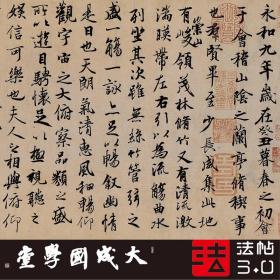 永和九年歲在癸丑暮春之初會
于會稽山陰之蘭亭脩稧事
也群賢畢至少長咸集此地
有崇山峻領茂林脩竹又有清流激
湍暎帶左右引以為流觴曲水
列坐其次雖無絲竹管弦之
盛一觴一詠亦足以暢敘幽情
是日也天朗氣清惠風和暢仰
觀宇宙之大俯察品類之盛
所以遊目騁懷足以極視聽之
娛信可樂也夫人之相與俯仰
大成國學堂
法帖3.0